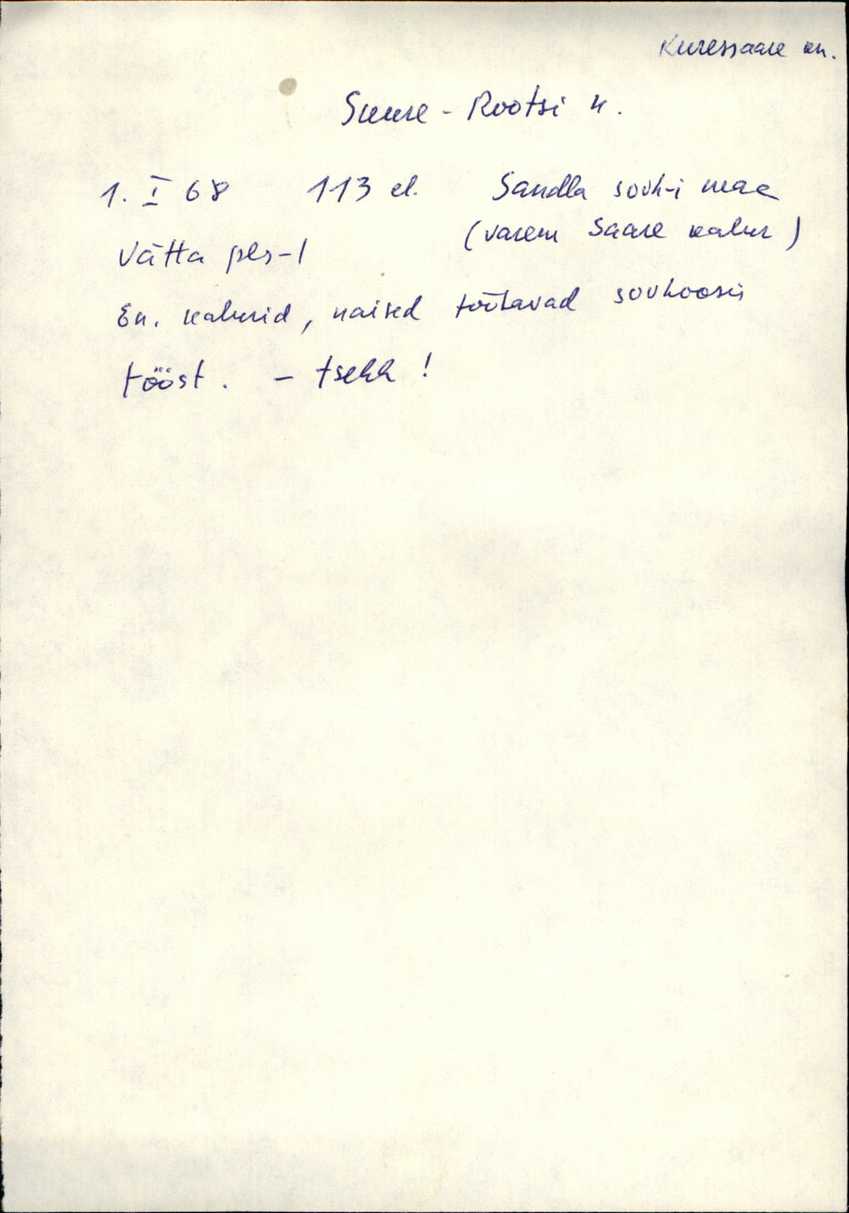 Kuressaare kn.
Suure-Rootsi k.
1. I 68 113 el. Sandla sovh-i maa
Vätta pls-l (varem Saare kalur)
En. kalurid, naised töötavad sovhoosis
tööst. - tsehh!